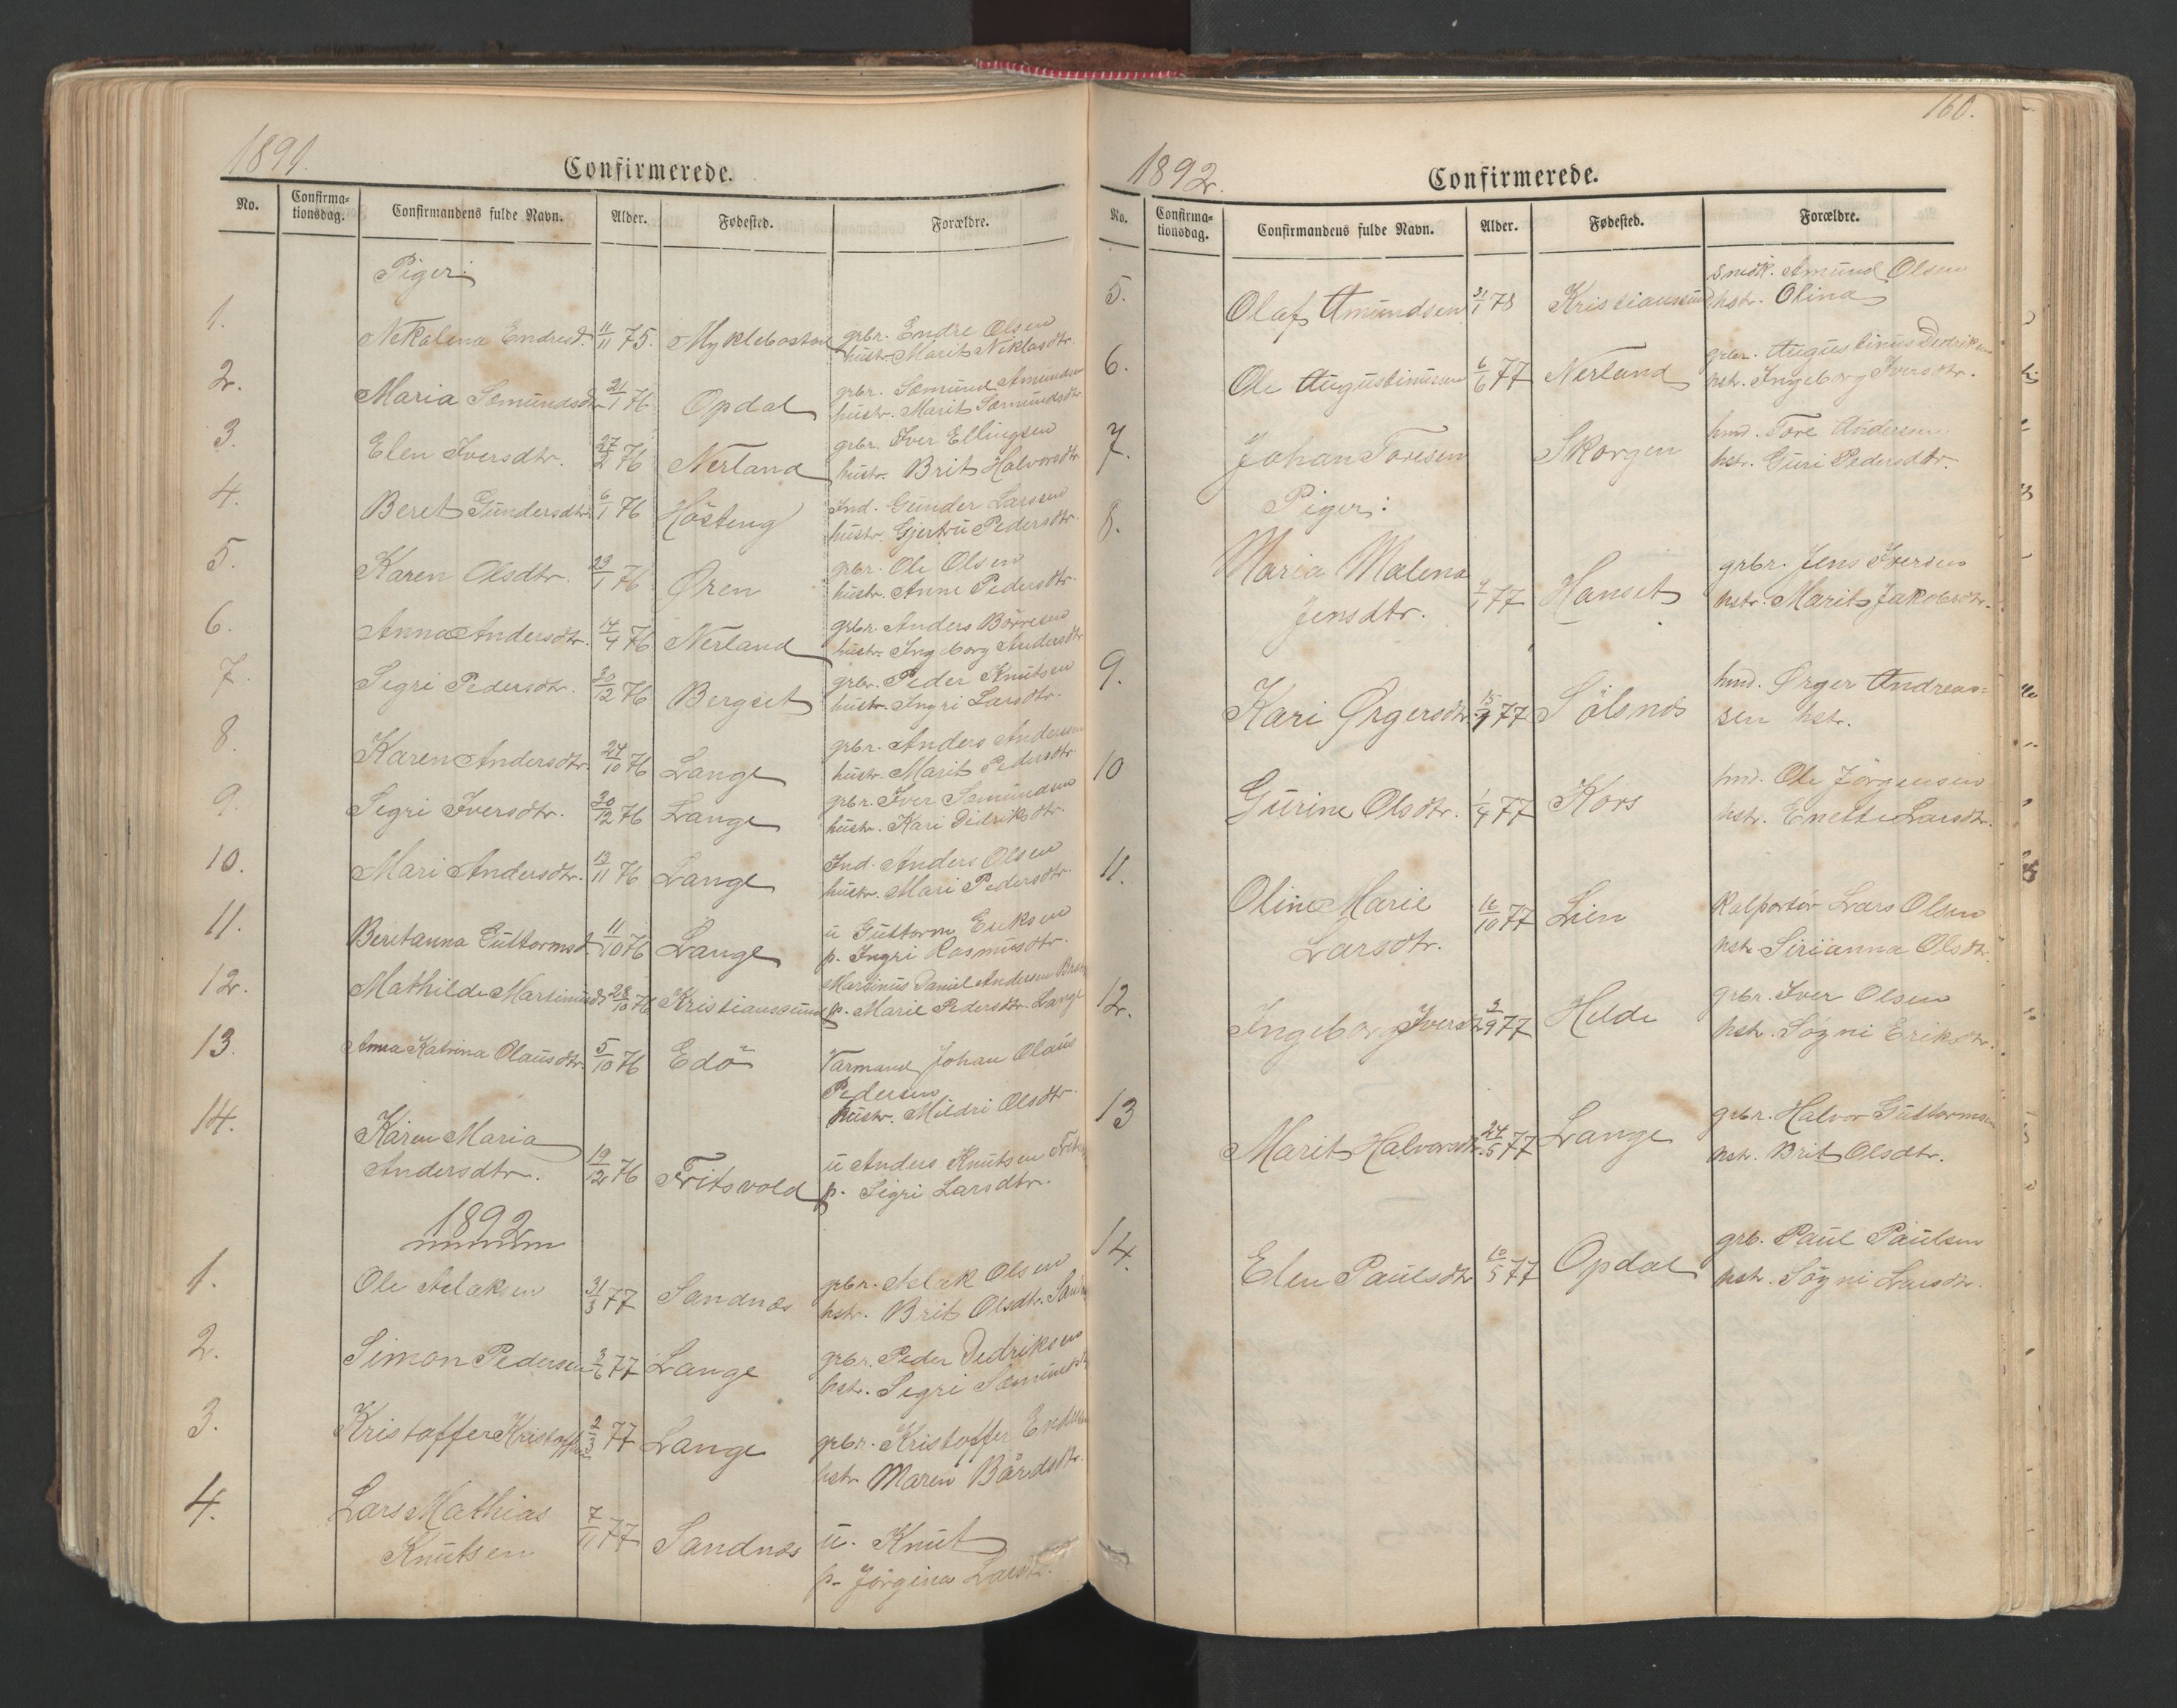 1891.
Confirmerede.
No. Confirma-tionsdag. Confirmandens fulde Navn. Alder. Fødested. Forældre.
Piger:
1. Nekolina Endresd. 11/11 75. Myklebostad grbr. Endre Olsen
hustr. Marit Niklasdtr.
2. Maria Somundsdtr 21/1 76 Opdal grbr. Somund Amundsen
hustr. Marit Somundsdtr
3. Elen Iversdtr. 27/2 76 Nerland grbr. Iver Ellingsen
hustr. Brit Halvorsdtr
4. Beret Gundersdtr 6/1 76 Hösteng Ind. Gunder Larssen
hustr. Gjertru Pedersdtr.
5. Karen Olsdtr. 29/1 76 Øren grbr. Ole Olsen
hustr. Anne Pedersdtr.
6. Anna Andersdtr. 14/4 76 Nerland grbr. Anders Börresen
hustr. Ingeborg Andersdtr
7. Segri Pedersdtr. 30/12 76 Bergset grbr. Peder Knutsen
hustr. Ingri Larsdtr.
8. Karen Andersdtr. 24/10 76 Lange grbr. Anders Andersen
hustr. Marit Pedersdtr
9. Segri Iversdtr. 30/12 76 Lange grbr. Iver Somundsen
hustr. Kari Didriksdtr.
10. Mari Andersdtr. 13/11 76 Lange Ind. Anders Olsen
hustr. Mari Pedersdtr.
11. Beritanna Guttormsd. 11/10 76 Lange u Guttorm Eriksen
p. Ingri Rasmusdtr.
12. Mathilde Martinusd 28/10 76 Kristianssund Martinus Daniel Andersen
p. Marie Pedersdtr. Lange
13. Anna Katrina Olausdtr. 5/10 76 Edö Varmand Johan Olaus
Pedersen
hustr. Mildri Olsdtr.
14. Karen Maria
Andersdtr. 19/12 76 Fritsvold u Anders Knutsen
p. Sigri Larsdtr.
1892
1. Ole Aslaksen 31/3 77 Sandnes grbr. Aslak Olsen
hstr. Brit Olsdtr.
2. Simon Pedersen 3/6 77 Lange grbr. Peder Dedriksen
hstr. Segri Somundsdtr
3. Kristoffer Kristoffersen 2/3 77 Lange grbr. Kristoffer Endresen
hstr Maren Bårdsdtr.
4. Lars Mathias
Knutsen 7/11 77 Sandnes u. Knut
p. Jörgina Larsdtr.
160.
1892.
Confirmerede.
No. Confirma-tionsdag. Confirmandens fulde Navn. Alder. Fødested. Forældre.
5. Olaf Amundsen 31/1 78 Kristianssund smdk. Amund Olsen
hstr. Olina
6. Ole Augustinussen 6/6 77 Nerland grbr. Augustinus Dedriksen
hstr. Ingeborg Iversdtr.
7. Johan Toresen Skorgen hmd. Tore Andersen
hstr. Guri Pedersdtr.
Piger:
8. Maria Malena
Jensdtr. 4/1 77 Hanset grbr. Jens Iversen
hstr. Marit Jakobsdtr.
9. Kari Ørgersdtr. 15/9 77 Sölsnes hmd. Ørger Andreas=
sen hstr.
10 Gurine Olsdtr. 1/4 77 Kors hmd. Ole Jörgensen
hstr. Enette Larsdtr.
11. Oline Marie
Larsdtr. 16/10 77 Lien Kolportör Lars Olsen
hstr Sirianna Olsdtr.
12. Ingeborg Iversdtr 3/9 77 Helde grbr. Iver Olsen
hstr. Sögni Eriksdtr.
13 Marit Halvorsdtr. 24/5 77 Lange grbr. Halvor Guttormsen
hstr. Brit Olsdtr.
14. Elen Paulsdtr 10/5 77 Opdal grb. Paul Paulsen
hstr. Sögni Larsdtr.